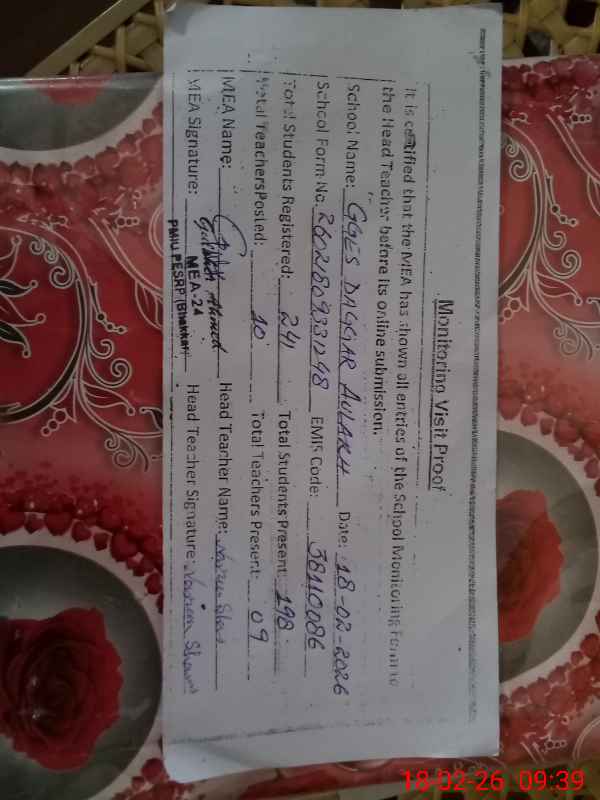 Monitoring Visit Proof
It is certified that the MEA has shown all entries of the School Monitoring Form to
the Head Teacher before its online submission.
School Name: GGES DAGGAR AULAKH Date: 18-02-2026
School Form No. 26021809331248 EMIS Code: 38110086
Total Students Registered: 241 Total Students Present: 198
Total Teachers Posted: 10 Total Teachers Present: 09
MEA Name: Ahmed Head Teacher Name:
MEA Signature: MEA-24 Head Teacher Signature:
PMIU PESRP (Bhakkar)
18-02-26 09:39